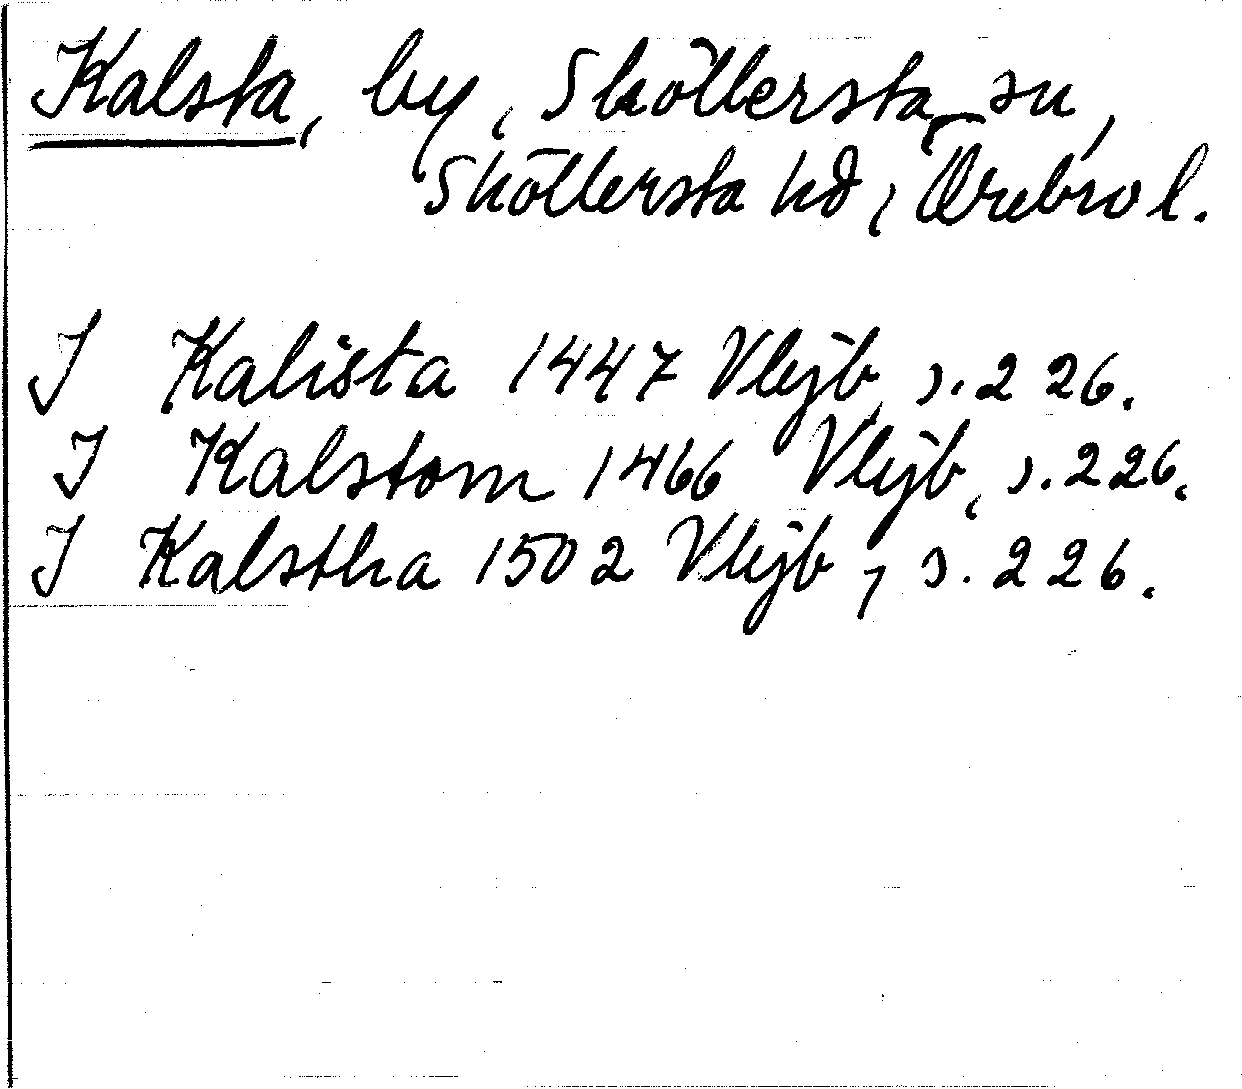 Kalsta, by, Sköllersta sn,
Sköllersta hd, Örebro l.
J Kalista 1447 Vlejb, s. 226.
J Kalstom 1466 Vlejb, s. 226.
J Kalstha 1502 Vlejb, s. 226.